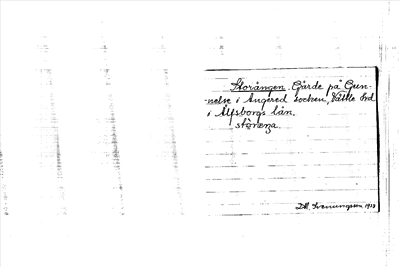 Storängen. Gärde på Gun-
nelse i Angered socken, Vättle hd
i Älfsborgs län.
D.H. Svenungsson 1923